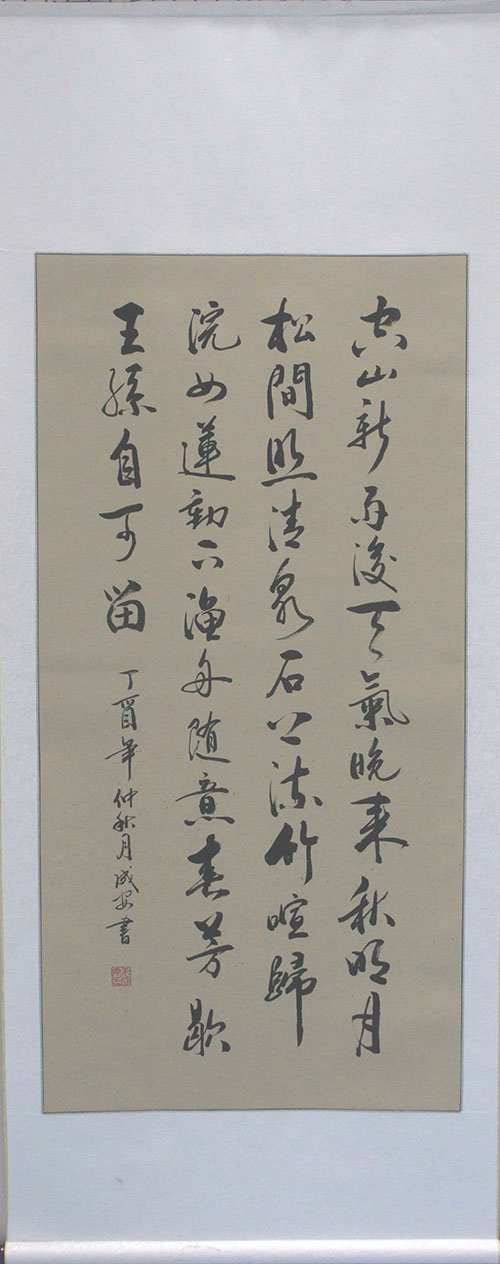 空山新雨後天氣晚來秋明月
松間照清泉石上流竹喧歸
浣女蓮動下漁舟随意春芳歇
王孫自可留
丁酉年仲秋月成安書